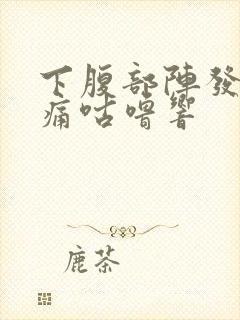 下腹部陣發
痛咕嚕響
鹿茶